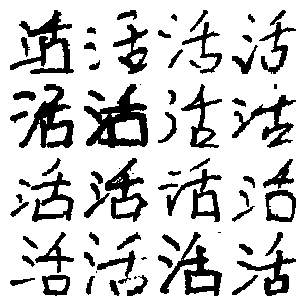 活活活活
活活活活
活活活活
活活活活